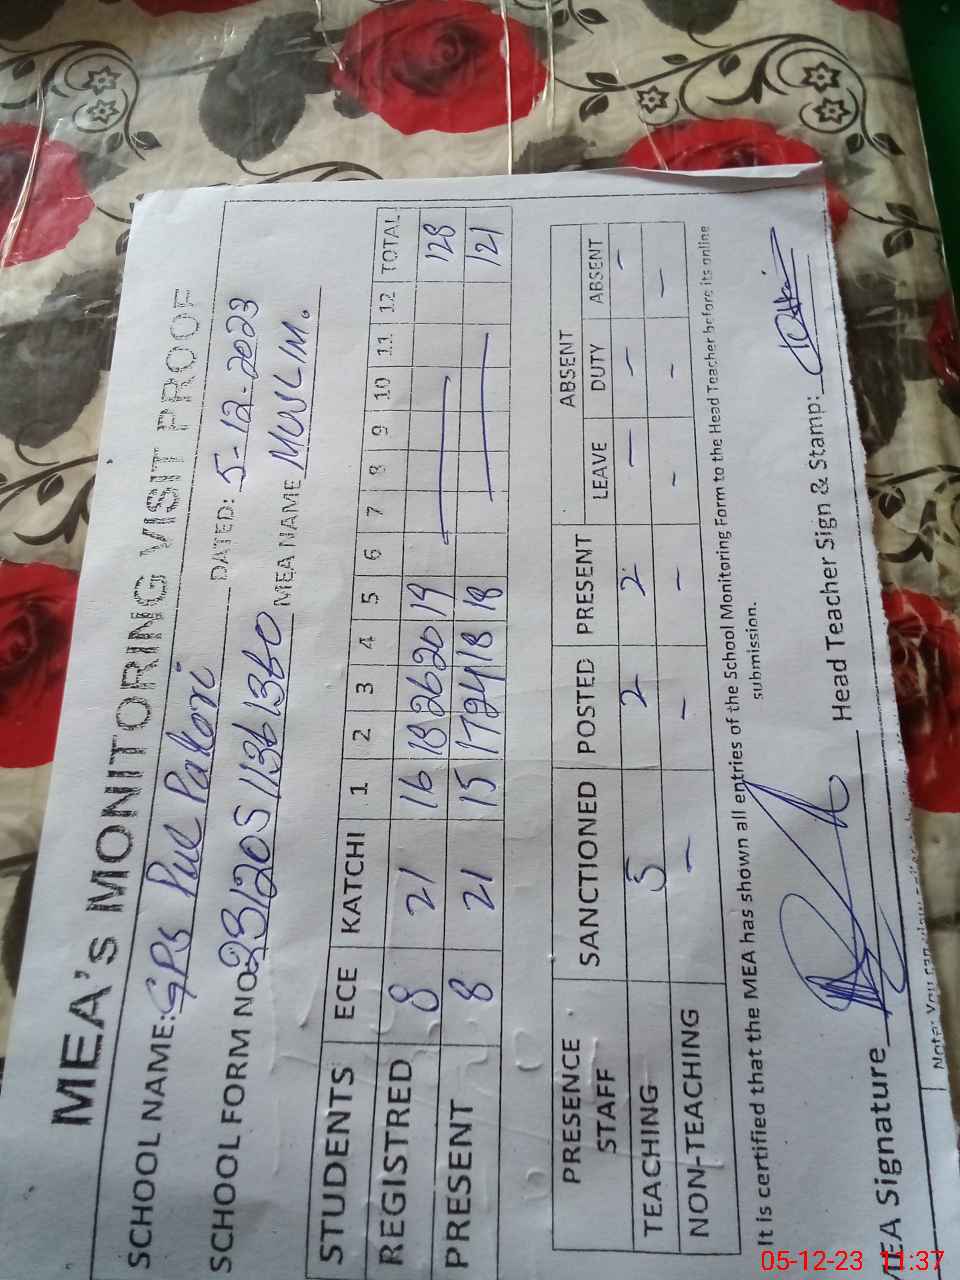 MEA's MONITORING VISIT PROOF
SCHOOL NAME: GPS Pul Pakori DATED: 5-12-2023
SCHOOL FORM NO 23120511361360 MEA NAME MUSLIM.
STUDENTS ECE KATCHI 1 2 3 4 5 6 7 8 9 10 11 12 TOTAL
REGISTRED 8 21 16 18 26 20 19 128
PRESENT 8 21 15 17 24 18 18 121
PRESENCE STAFF SANCTIONED POSTED PRESENT ABSENT
LEAVE DUTY ABSENT
TEACHING 5 2 2 - - -
NON-TEACHING - - - - - -
It is certified that the MEA has shown all entries of the School Monitoring Form to the Head Teacher before its online
submission.
MEA Signature Head Teacher Sign & Stamp:
Note: You can view
05-12-23 11:37